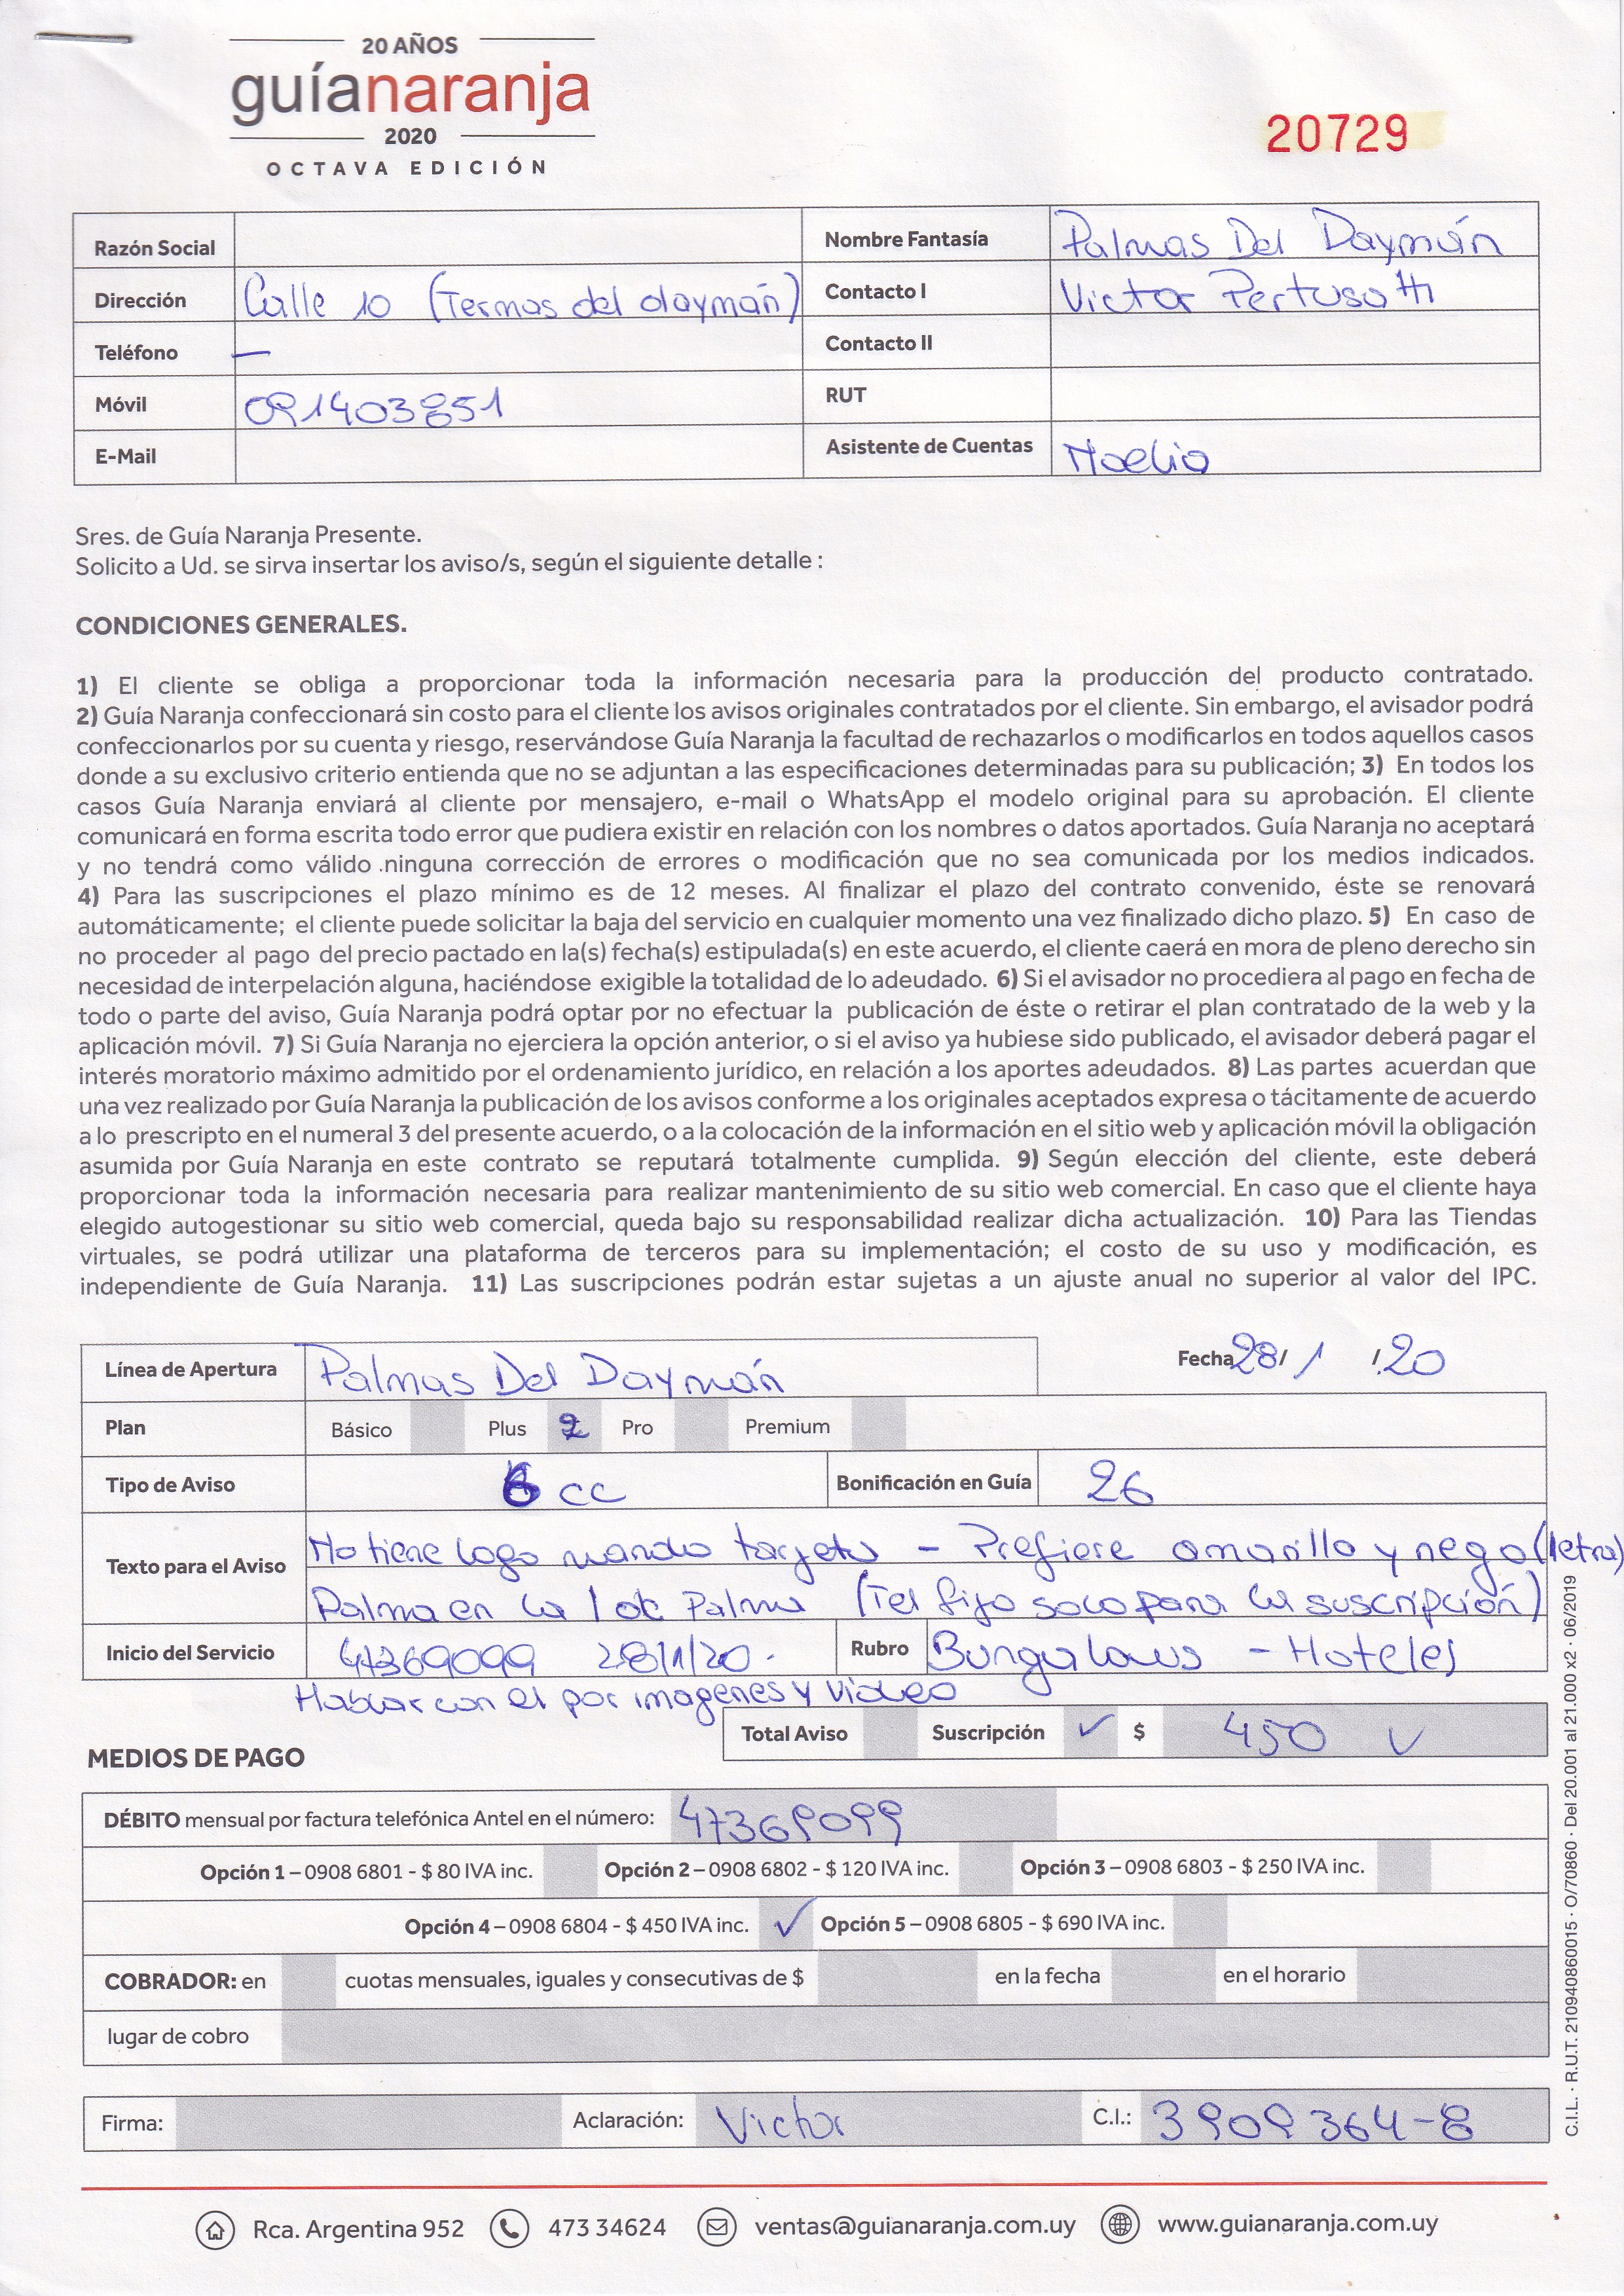 20 AÑOS
guíanaranja
2020
OCTAVA EDICIÓN
20729
Razón Social
Nombre Fantasía Palmas Del Daymán
Dirección Calle 10 (Termas del daymán)
Contacto I Victor Pertusatti
Teléfono —
Contacto II
Móvil 091403851
RUT
E-Mail
Asistente de Cuentas Noelia
Sres. de Guía Naranja Presente.
Solicito a Ud. se sirva insertar los aviso/s, según el siguiente detalle :
CONDICIONES GENERALES.
1) El cliente se obliga a proporcionar toda la información necesaria para la producción del producto contratado.
2) Guía Naranja confeccionará sin costo para el cliente los avisos originales contratados por el cliente. Sin embargo, el avisador podrá
confeccionarlos por su cuenta y riesgo, reservándose Guía Naranja la facultad de rechazarlos o modificarlos en todos aquellos casos
donde a su exclusivo criterio entienda que no se adjuntan a las especificaciones determinadas para su publicación; 3) En todos los
casos Guía Naranja enviará al cliente por mensajero, e-mail o WhatsApp el modelo original para su aprobación. El cliente
comunicará en forma escrita todo error que pudiera existir en relación con los nombres o datos aportados. Guía Naranja no aceptará
y no tendrá como válido .ninguna corrección de errores o modificación que no sea comunicada por los medios indicados.
4) Para las suscripciones el plazo mínimo es de 12 meses. Al finalizar el plazo del contrato convenido, éste se renovará
automáticamente; el cliente puede solicitar la baja del servicio en cualquier momento una vez finalizado dicho plazo. 5) En caso de
no proceder al pago del precio pactado en la(s) fecha(s) estipulada(s) en este acuerdo, el cliente caerá en mora de pleno derecho sin
necesidad de interpelación alguna, haciéndose exigible la totalidad de lo adeudado. 6) Si el avisador no procediera al pago en fecha de
todo o parte del aviso, Guía Naranja podrá optar por no efectuar la publicación de éste o retirar el plan contratado de la web y la
aplicación móvil. 7) Si Guía Naranja no ejerciera la opción anterior, o si el aviso ya hubiese sido publicado, el avisador deberá pagar el
interés moratorio máximo admitido por el ordenamiento jurídico, en relación a los aportes adeudados. 8) Las partes acuerdan que
una vez realizado por Guía Naranja la publicación de los avisos conforme a los originales aceptados expresa o tácitamente de acuerdo
a lo prescripto en el numeral 3 del presente acuerdo, o a la colocación de la información en el sitio web y aplicación móvil la obligación
asumida por Guía Naranja en este contrato se reputará totalmente cumplida. 9) Según elección del cliente, este deberá
proporcionar toda la información necesaria para realizar mantenimiento de su sitio web comercial. En caso que el cliente haya
elegido autogestionar su sitio web comercial, queda bajo su responsabilidad realizar dicha actualización. 10) Para las Tiendas
virtuales, se podrá utilizar una plataforma de terceros para su implementación; el costo de su uso y modificación, es
independiente de Guía Naranja. 11) Las suscripciones podrán estar sujetas a un ajuste anual no superior al valor del IPC.
Línea de Apertura Palmas Del Daymán
Fecha 28/ 1 /20
Plan Básico Plus 2 Pro Premium
Tipo de Aviso 6 cc Bonificación en Guía 26
Texto para el Aviso No tiene logo mando tarjeta - Prefiere amarillo y nego (letra)
Palma en la l de Palma (Tel fijo solo para la suscripción)
Inicio del Servicio 47369099 28/1/20. Rubro Bungalows - Hoteles
Hablar con el por imagenes y video
Total Aviso Suscripción ✓ $ 450 ✓
MEDIOS DE PAGO
DÉBITO mensual por factura telefónica Antel en el número: 47369099
Opción 1 – 0908 6801 - $ 80 IVA inc. Opción 2 – 0908 6802 - $ 120 IVA inc. Opción 3 – 0908 6803 - $ 250 IVA inc.
Opción 4 – 0908 6804 - $ 450 IVA inc. ✓ Opción 5 – 0908 6805 - $ 690 IVA inc.
COBRADOR: en cuotas mensuales, iguales y consecutivas de $ en la fecha en el horario
lugar de cobro
Firma: Aclaración: Victor C.I.: 3909364-8
C.I.L. · R.U.T. 210940860015 · O/70860 · Del 20.001 al 21.000 x2 · 06/2019
Rca. Argentina 952 473 34624 ventas@guianaranja.com.uy www.guianaranja.com.uy